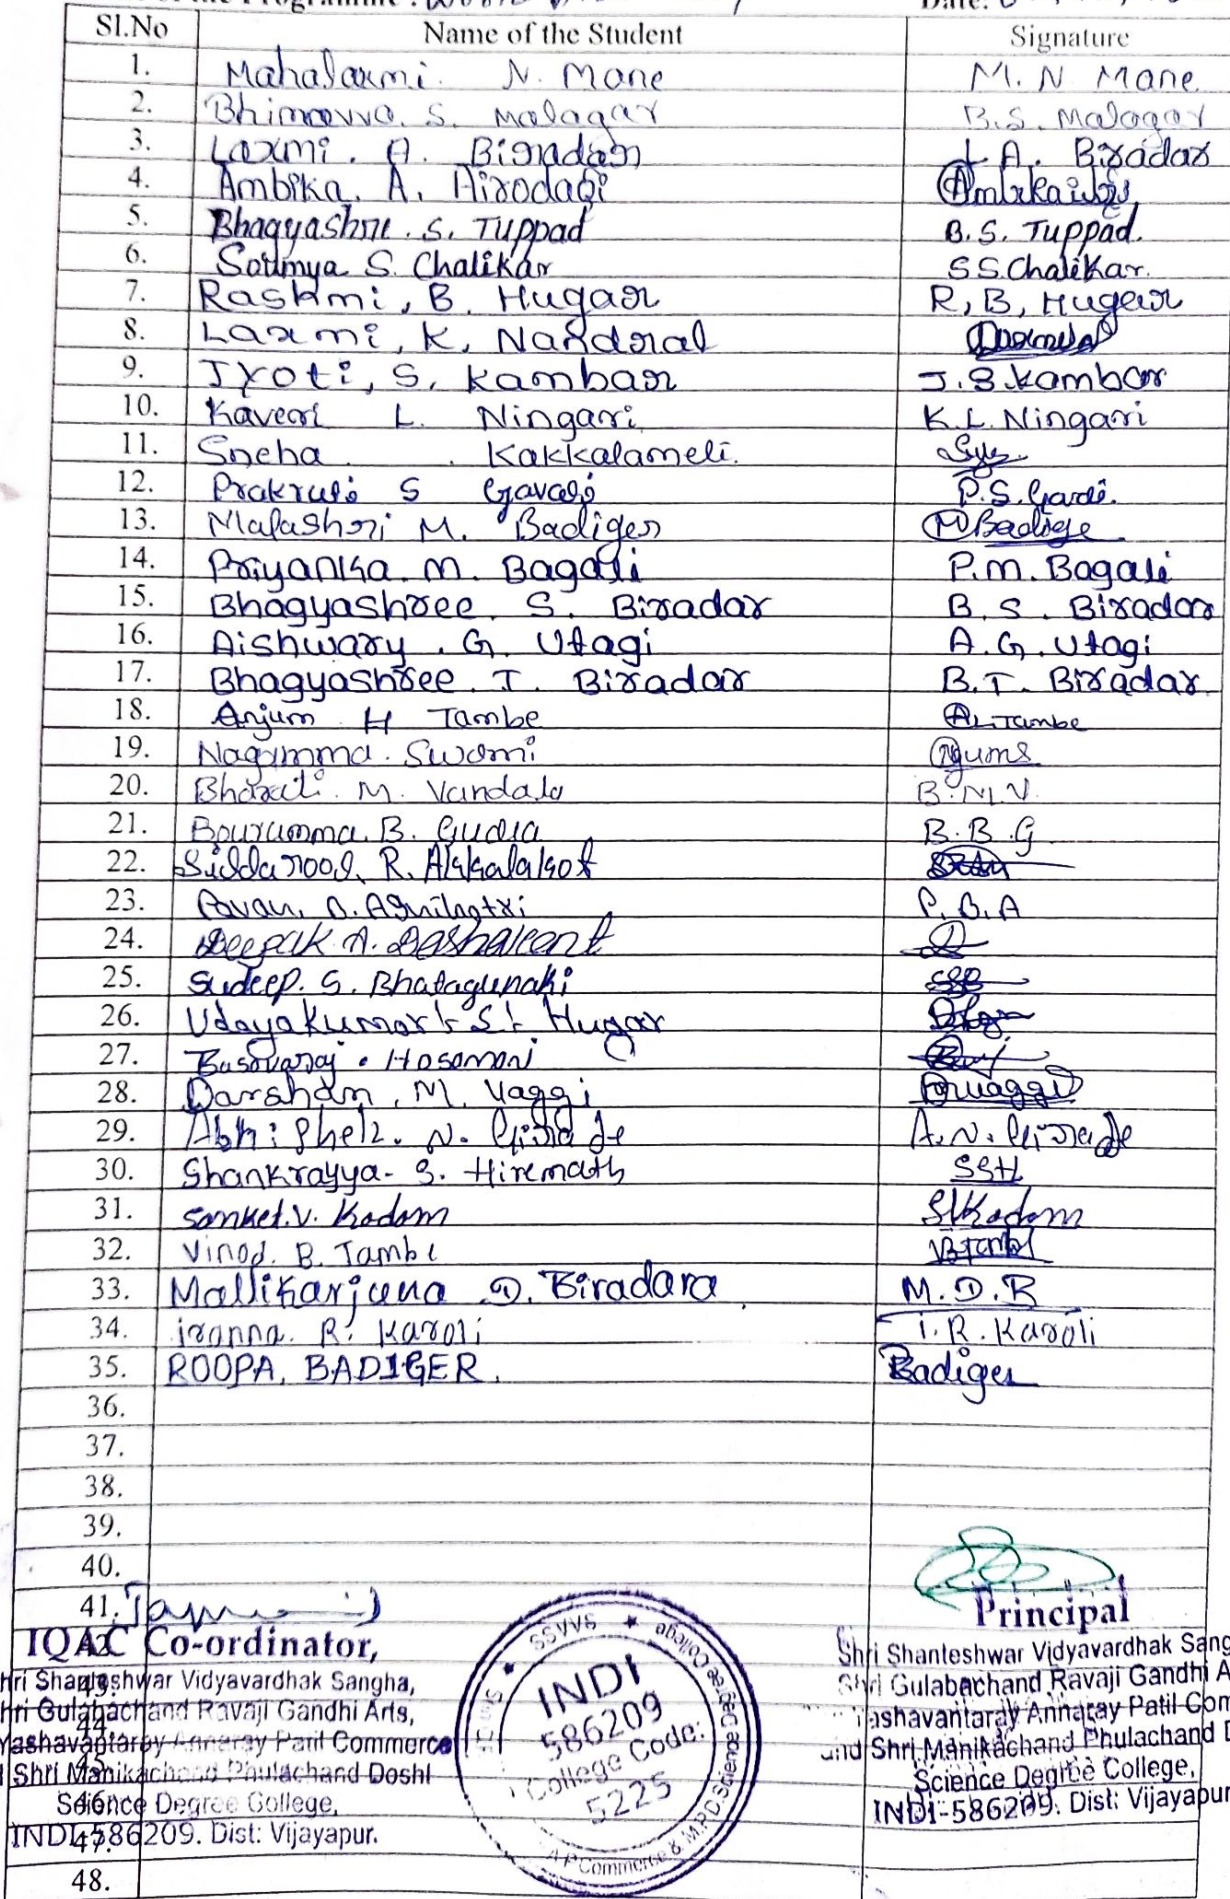 Date:
Sl.No Name of the Student Signature
1. Mahalaxmi. N. Mane M. N Mane
2. Bhimavva. S. Malagar B.S. Malagar
3. Laxmi. A. Biradar L A. Biradar
4. Ambika. A. Airodagi
5. Bhagyashri. S. Tuppad B.S. Tuppad.
6. Soumya S. Chalikar S S.Chalikar.
7. Rashmi, B. Hugar R, B, Hugar
8. Laxmi, K, Nandral
9. Jyoti, S, Kambar J.S.Kambar
10. Kaveri L. Ningari K.L. Ningari
11. Sneha Kakkalameli.
12. Prakruti S Gavali
13. Malashri M. Badiger M Badige
14. Priyanka. M. Bagali P.M. Bagali
15. Bhagyashree. S. Biradar B. S. Biradar
16. Aishwary. G. Utagi A.G. Utagi
17. Bhagyashree. T. Biradar B.T. Biradar
18. Anjum H Tambe A.H.Tambe
19. Nagamma. Swami
20. Bharati. M. Vandala B.M.V.
21. Bouramma. B. B.B.G
22. Siddarood. R. Akkalakot
23. Pavan. B. Agnihotri P.B.A
24. Deepak A. Dashavant
25. Sudeep. S. Bhatagunaki SSB
26. Udayakumar S. Hugar
27. Basavaraj. Hosamani
28. Darshan. M. Vaggi
29. Abhishek. N. A.N.
30. Shankrayya- S. Hiremath SSH
31. Sanket.V. Kadam SVKadam
32. Vinod. B. Tambe
33. Mallikarjuna D. Biradara M.D.B
34. iranna. R. Karoli i.R. Karoli
35. ROOPA. BADIGER. Badiger
36.
37.
38.
39.
40.
41.
Principal
IQAC Co-ordinator,
Shri Shanteshwar Vidyavardhak Sangha,
Shri Gulabachand Ravaji Gandhi Arts,
Yashavantaray Annaray Patil Commerce
Shri Manikachand Phulachand Doshi
Science Degree College,
INDI-586209. Dist: Vijayapur.
42.
43.
44.
45.
46.
47.
48.
SSVVS
INDI
586209
College Code:
5225
A P Commerce & M.P.D.Science Degree College
Shri Shanteshwar Vidyavardhak Sang
Shri Gulabachand Ravaji Gandhi A
Yashavantaray Annaray Patil Com
and Shri Manikachand Phulachand D
Science Degree College,
INDI-586209. Dist: Vijayapur